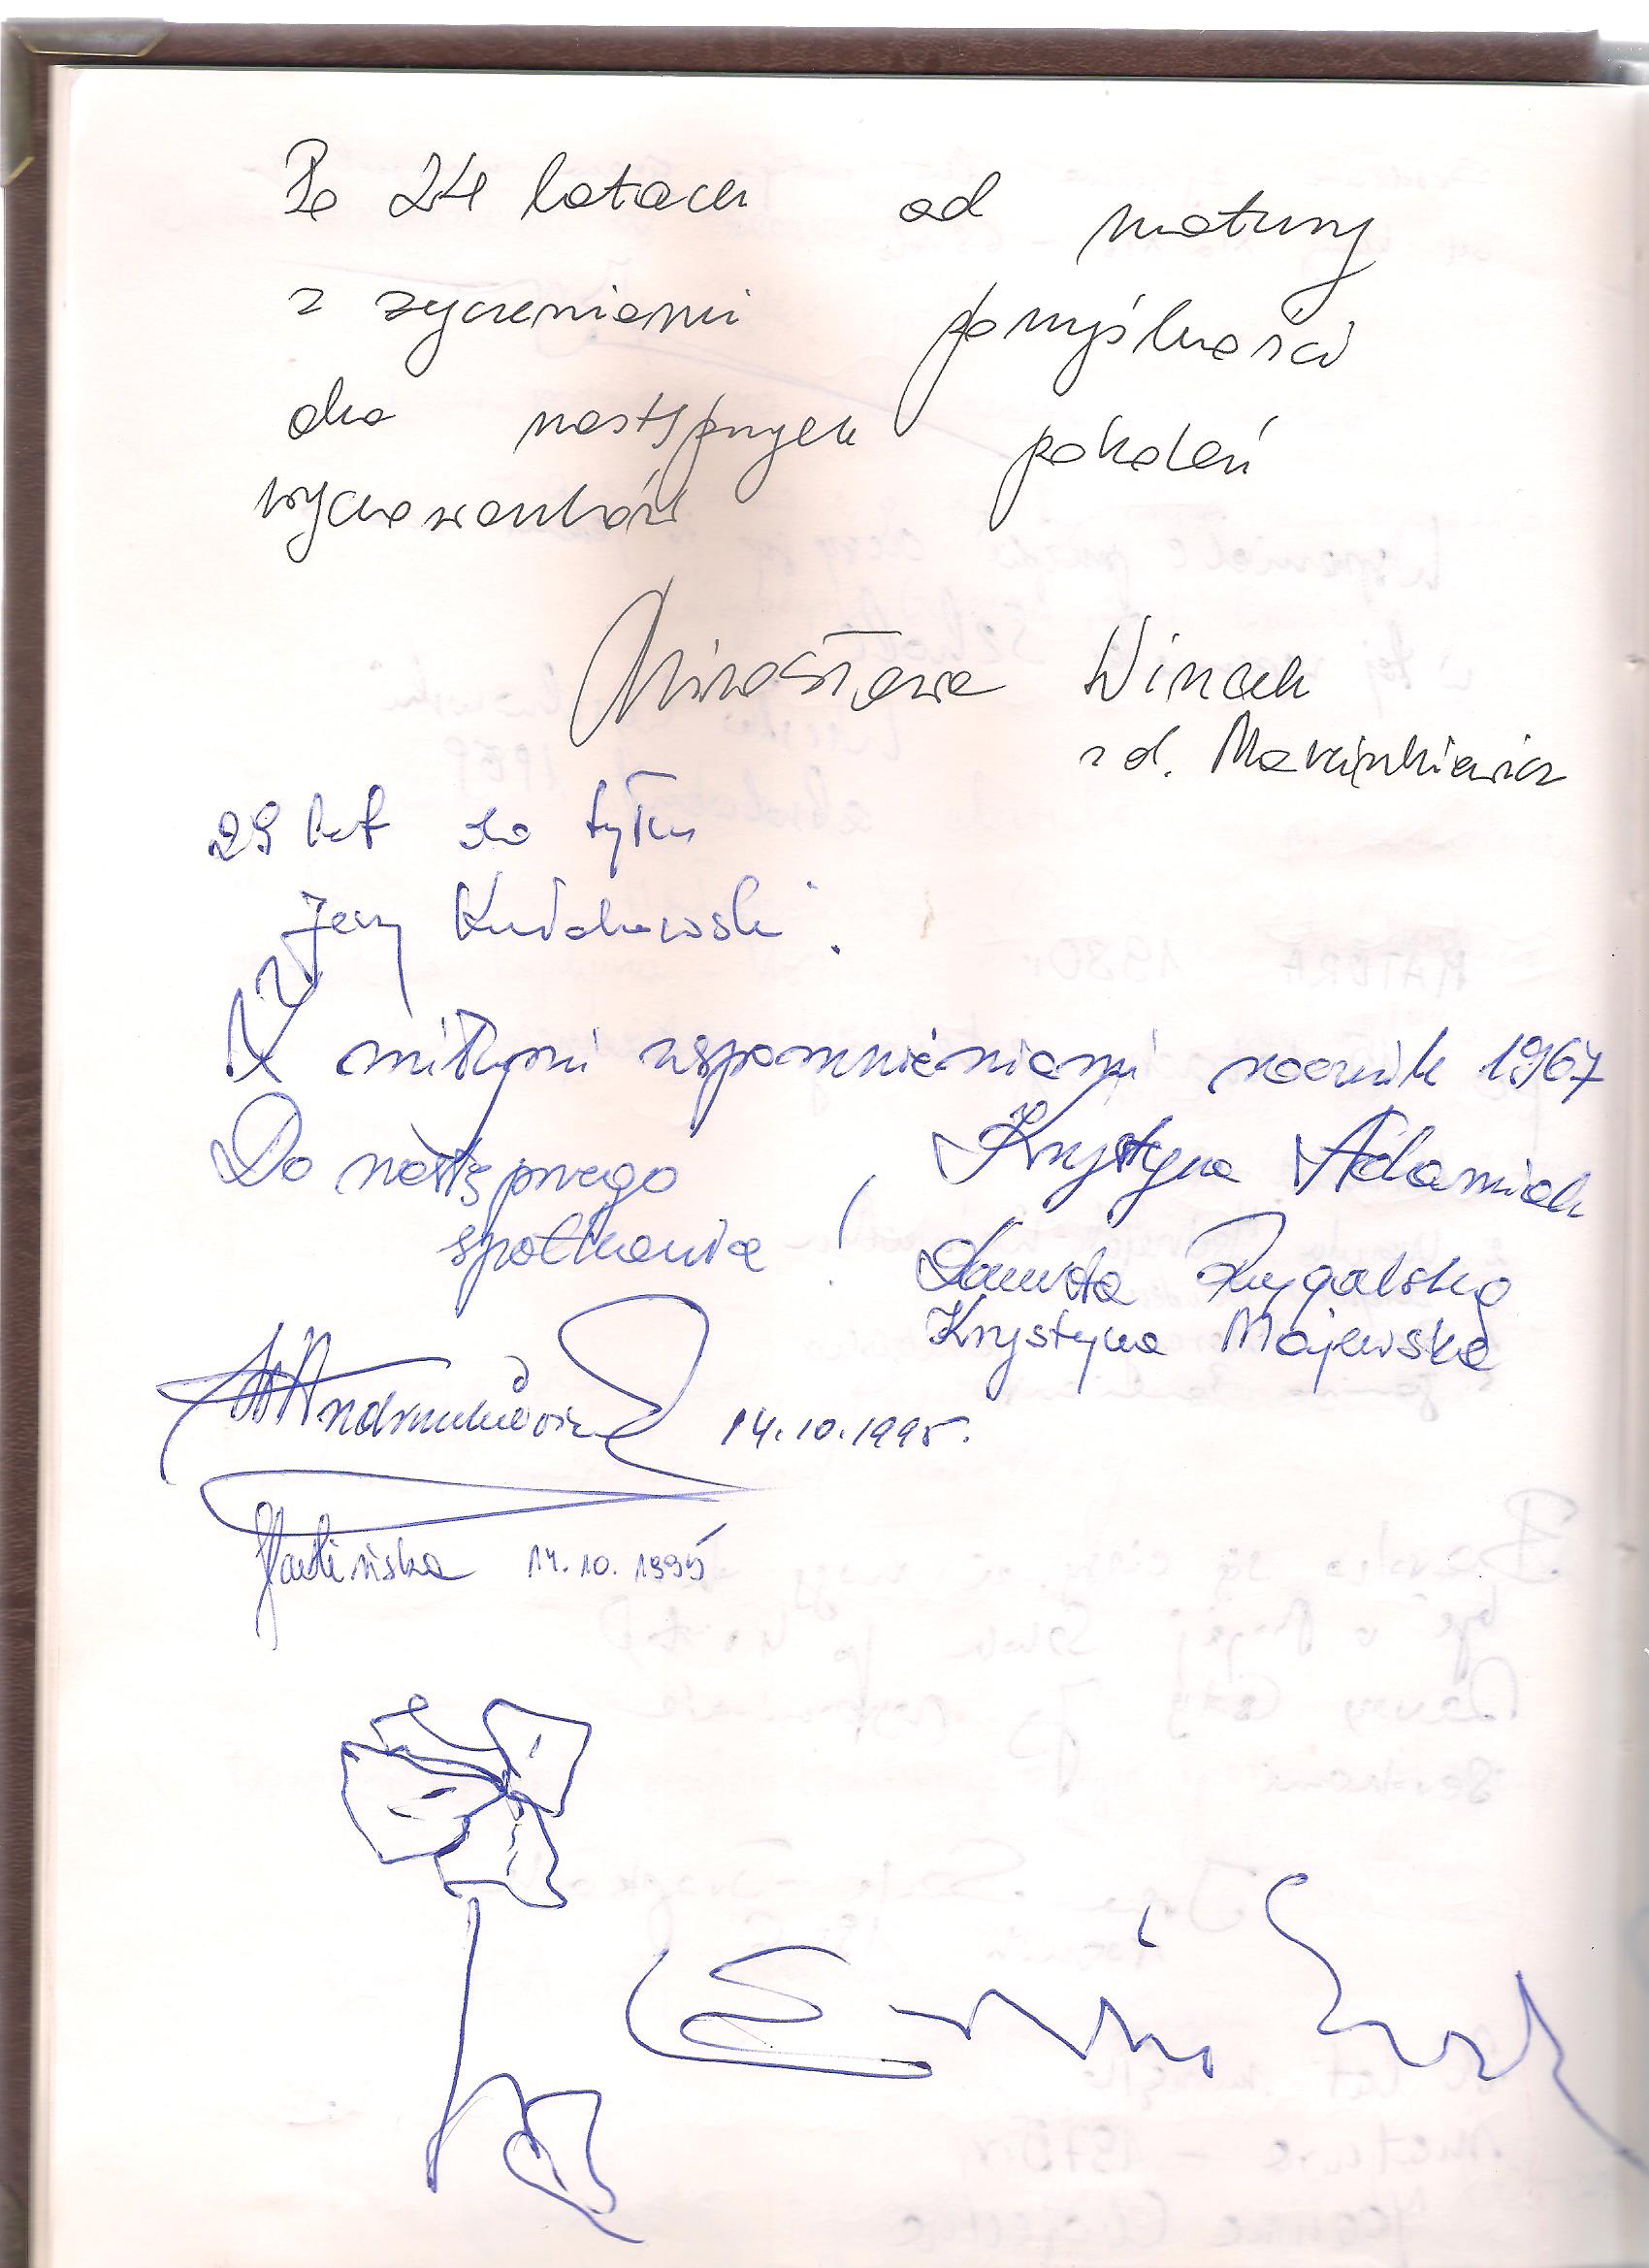 Po 24 latach od matury
z życzeniami pomyślności
dla następnych pokoleń
wychowanków
Mirosława Wincek
z d. Marcinkiewicz
29 lat do tyłu
Jerzy
Z miłymi wspomnieniami rocznik 1967
Do następnego spotkania!
Krystyna Adamiak
Danuta Rygalska
Krystyna Majewska
14.10.1995.
14.10.1995